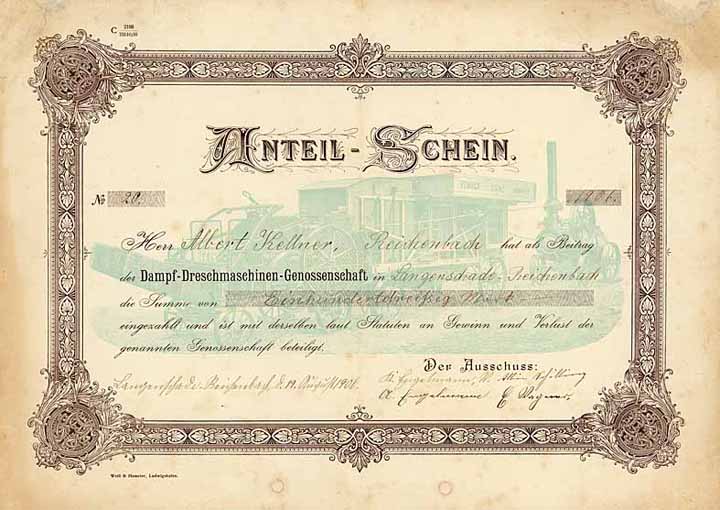 C
ANTEIL-SCHEIN.
№ 20. 1906.
Herr Albert Kellner, Reichenbach hat als Beitrag
der Dampf-Dreschmaschinen-Genossenschaft in Langenschade-Reichenbach
die Summe von Einhundertdreissig Mark
eingezahlt und ist mit derselben laut Statuten an Gewinn und Verlust der
genannten Genossenschaft beteiligt.
Der Ausschuss:
Langenschade-Reichenbach d. 19. August 1906.
Engelmann,
E. Wagner